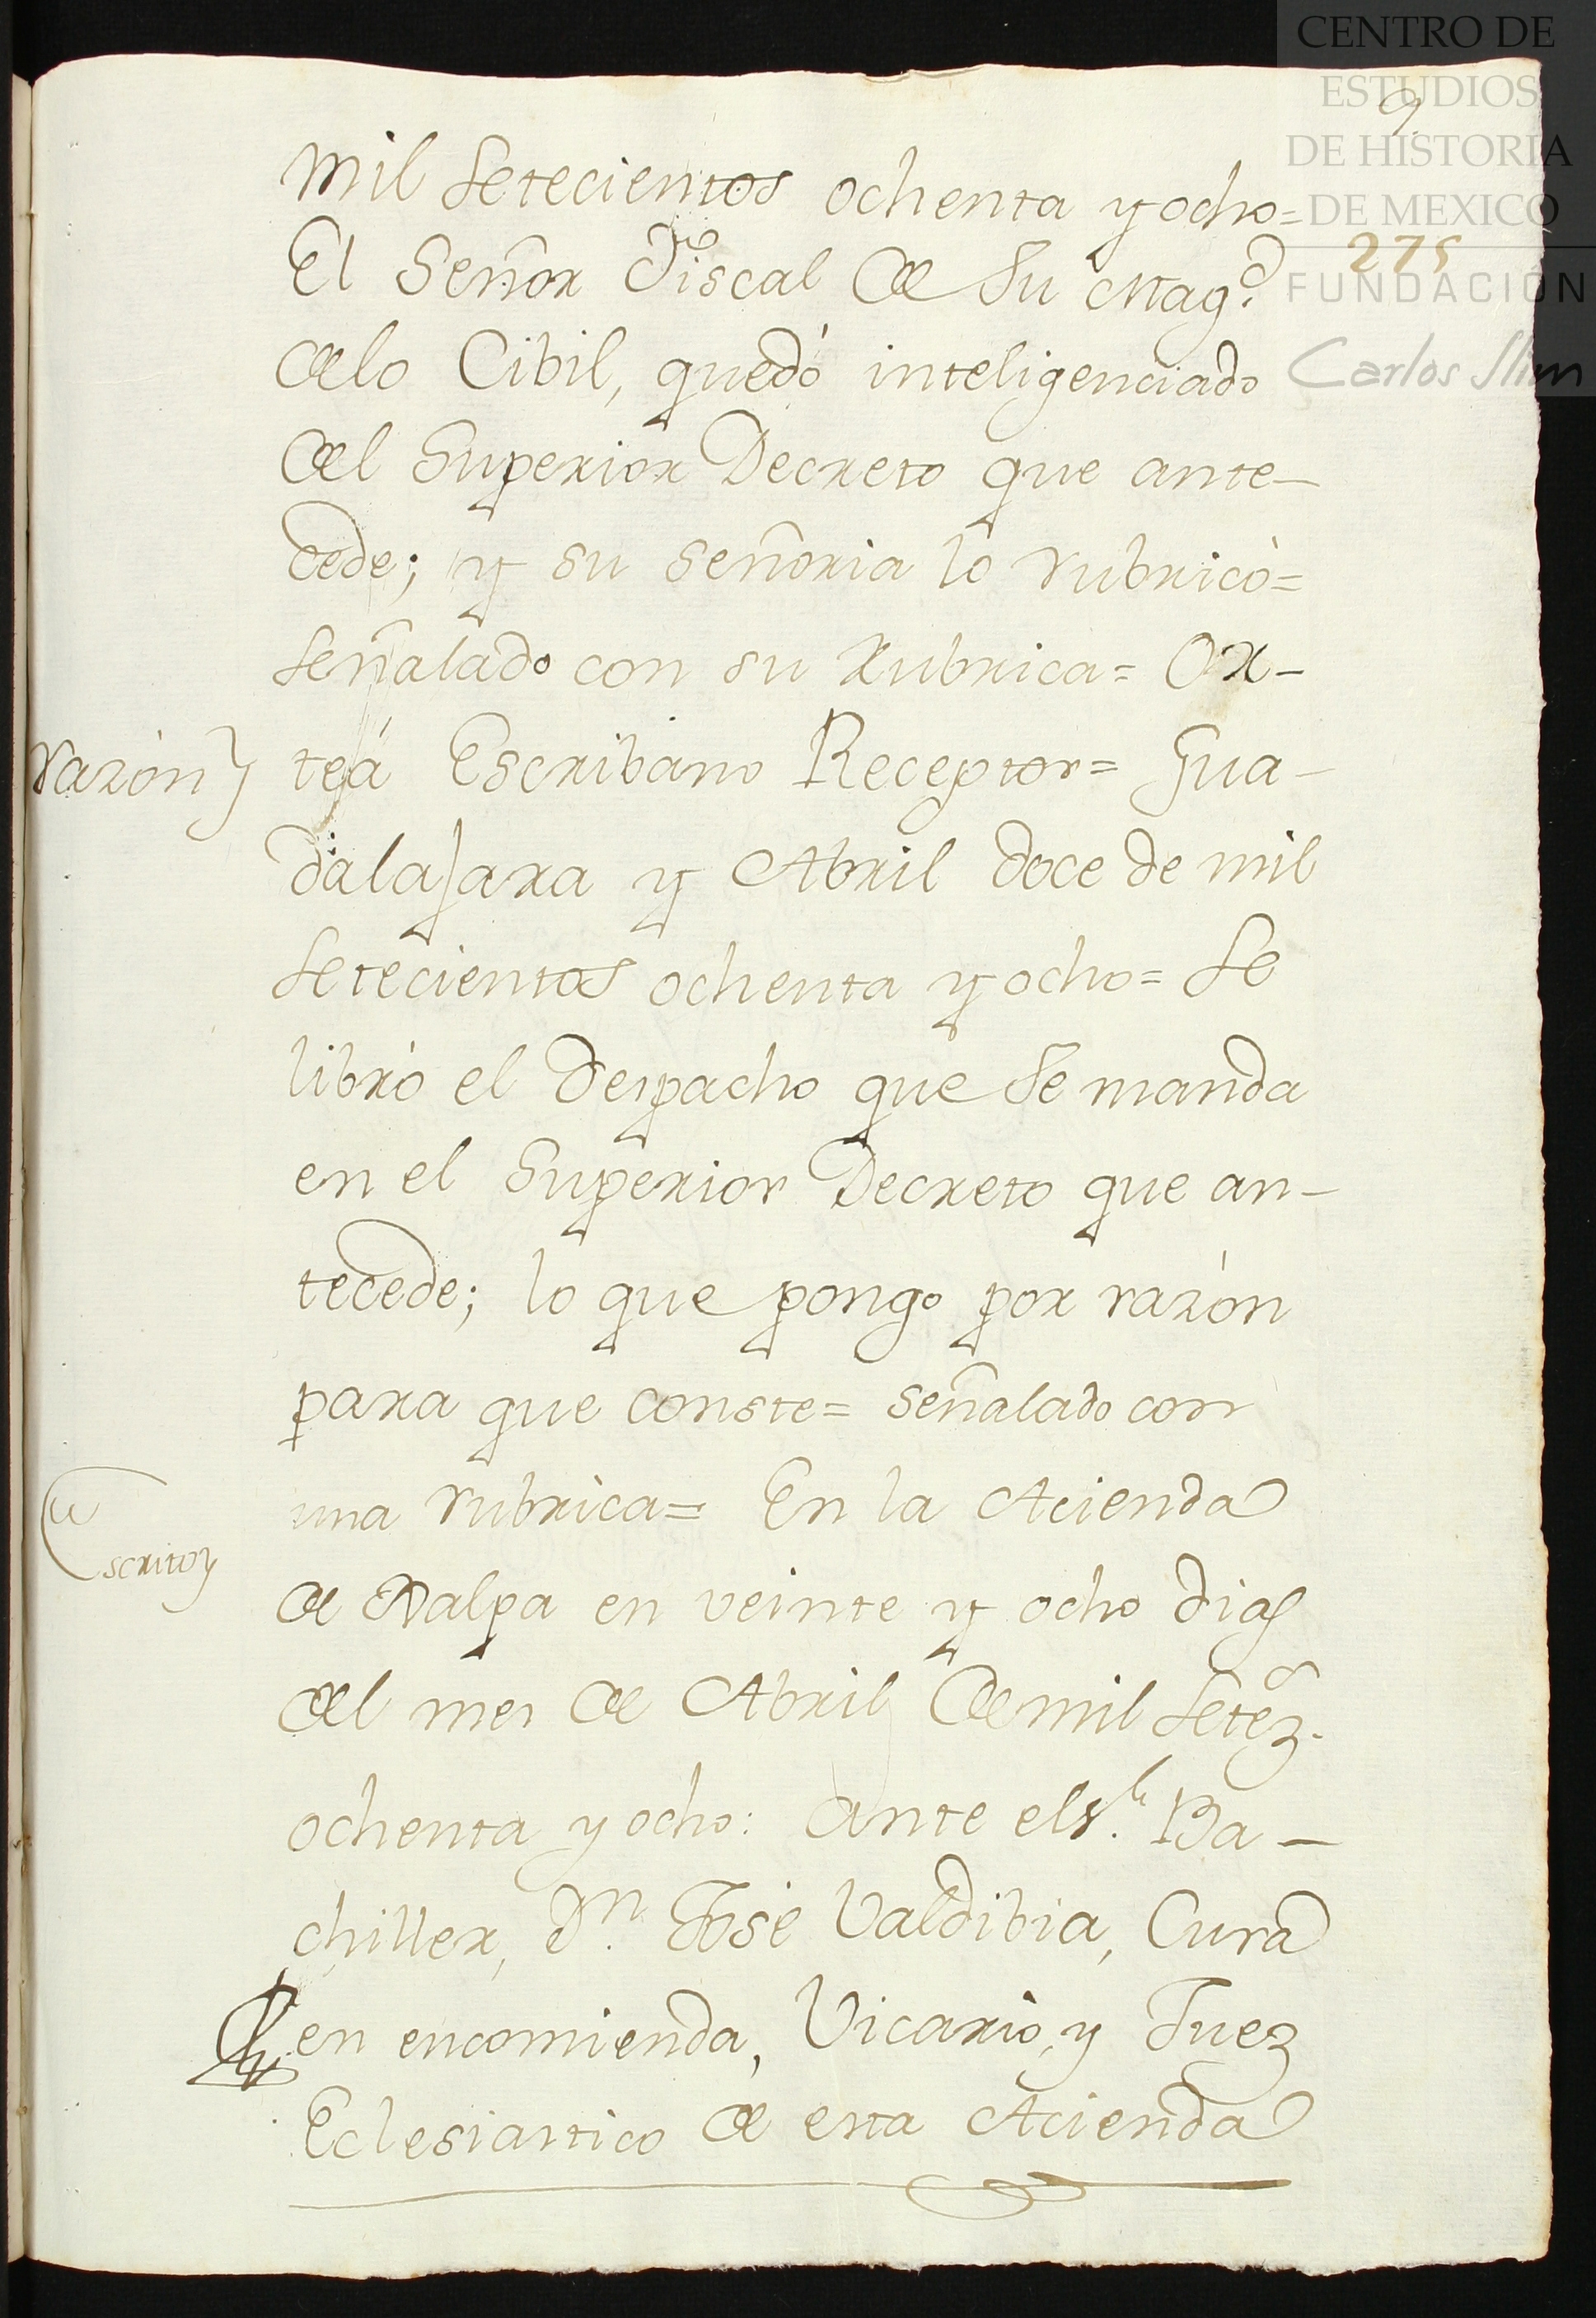 CENTRO DE
ESTUDIOS
DE HISTORIA
DE MEXICO
FUNDACIÓN
Carlos Slim
9
275
Mil Setecientos ochenta y ocho=
El Señor Fiscal de Su Magd.
delo Cibil, quedó inteligenciado
del Superior Decreto que ante-
cede; y su señoria lo rubricó=
Señalado con su Rubrica= Or-
razón teá Escribano Receptor= Gua-
dalajara y Abril doce de mil
Setecientos ochenta y ocho= Se
libró el Despacho que Se manda
en el Superior Decreto que an-
tecede; lo que pongo por razón
para que conste= señalado con
una rubrica= En la Acienda
Escrito
de Xalpa en veinte y ocho dias
del mes de Abril de mil Setez.
ochenta y ocho: ante el sr. Ba-
chiller, Dn. José Valdibia, Cura
en encomienda, Vicario, y Juez
Eclesiastico de esta Acienda